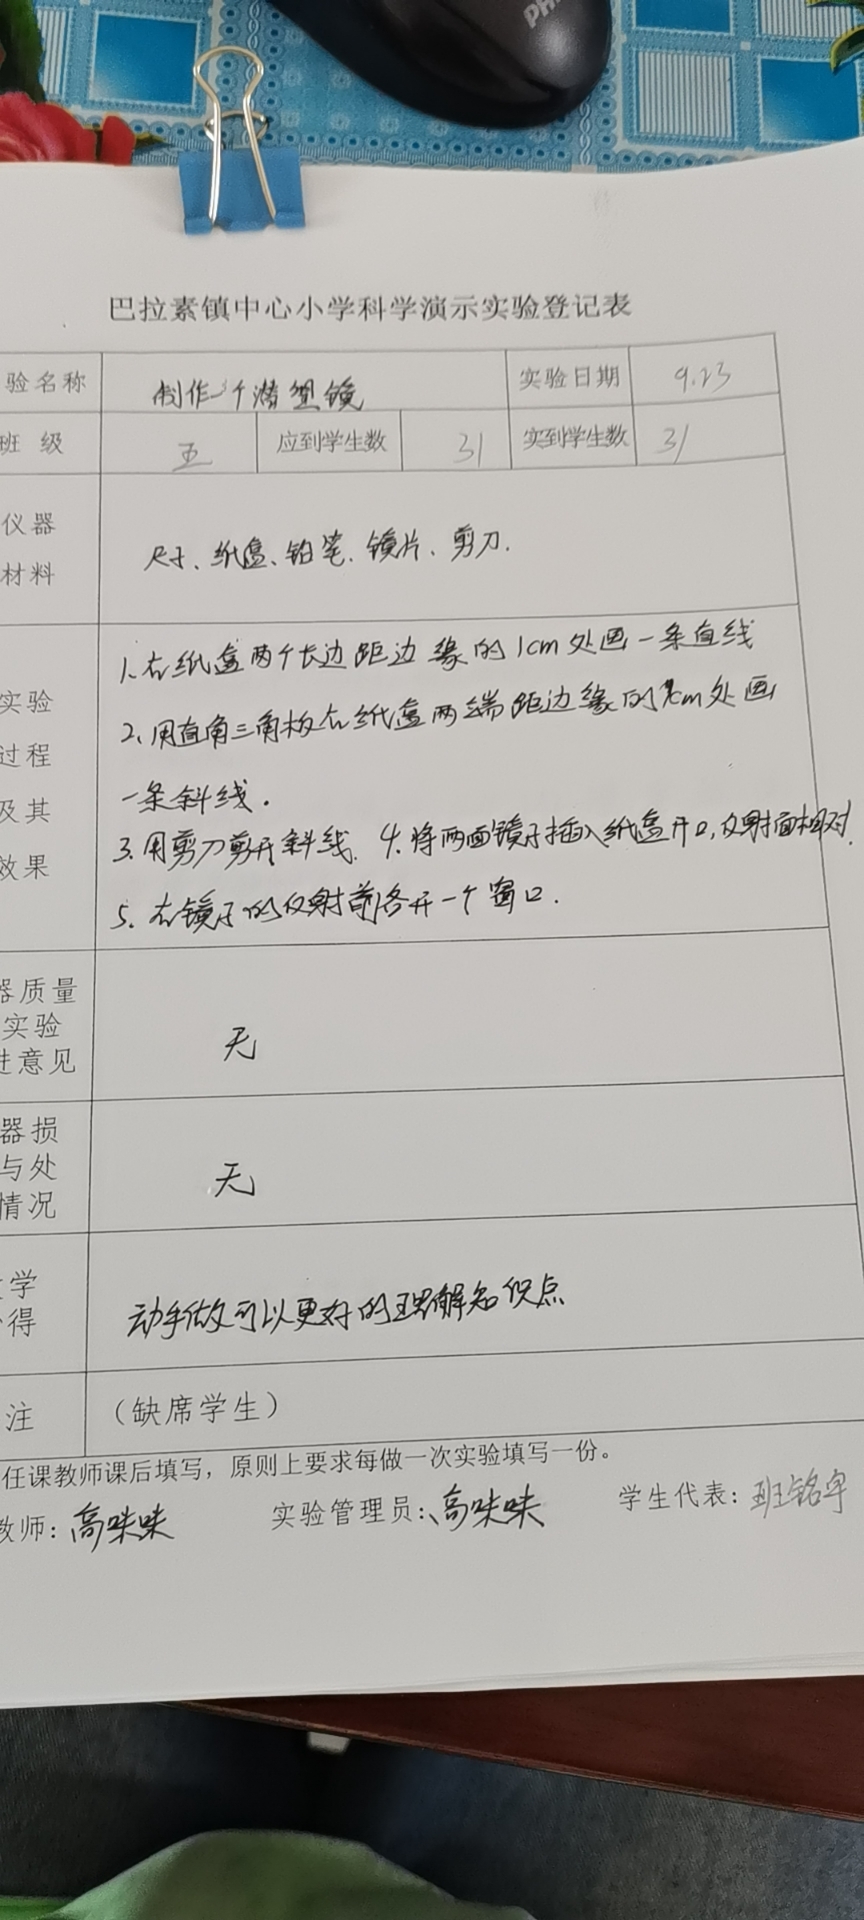 PHI
巴拉素镇中心小学科学演示实验登记表
验名称 制作一个潜望镜 实验日期 9.23
班 级 五 应到学生数 31 实到学生数 31
仪器
材料
尺子、纸盒、铅笔、镜片、剪刀.
实验
过程
及其
效果
1.在纸盒两个长边距边缘的1cm处画一条直线
2、用直角三角板在纸盒两端距边缘的1cm处画
一条斜线.
3.用剪刀剪开斜线. 4.将两面镜子插入纸盒开口,反射面相对.
5.在镜子的反射前各开一个窗口.
器质量
实验
进意见
无
器损
与处
情况
无
学
得
动手做又可以更好的理解知识点
注 (缺席学生)
任课教师课后填写，原则上要求每做一次实验填写一份。
教师：高味味 实验管理员：高味味 学生代表：班铭宇